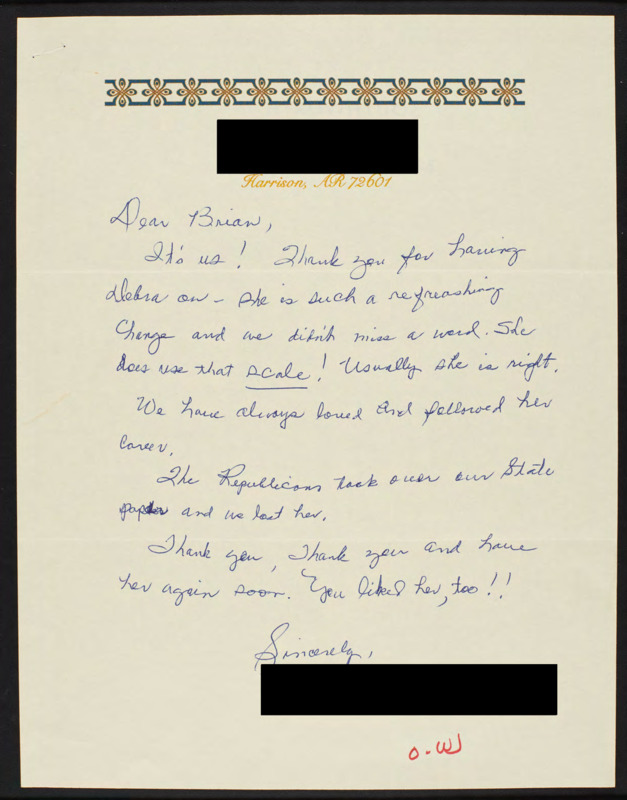 Harrison, AR 72601
Dear Brian,
It's us! Thank you for having
Debra on - she is such a refreashing
Change and we didn't miss a word. She
does use that scale! Usually she is right.
We have always loved and followed her
career.
The Republicans took over our State
paper and we lost her.
Thank you, Thank you and have
her again soon. You liked her, too!!
Sincerely,
O.W